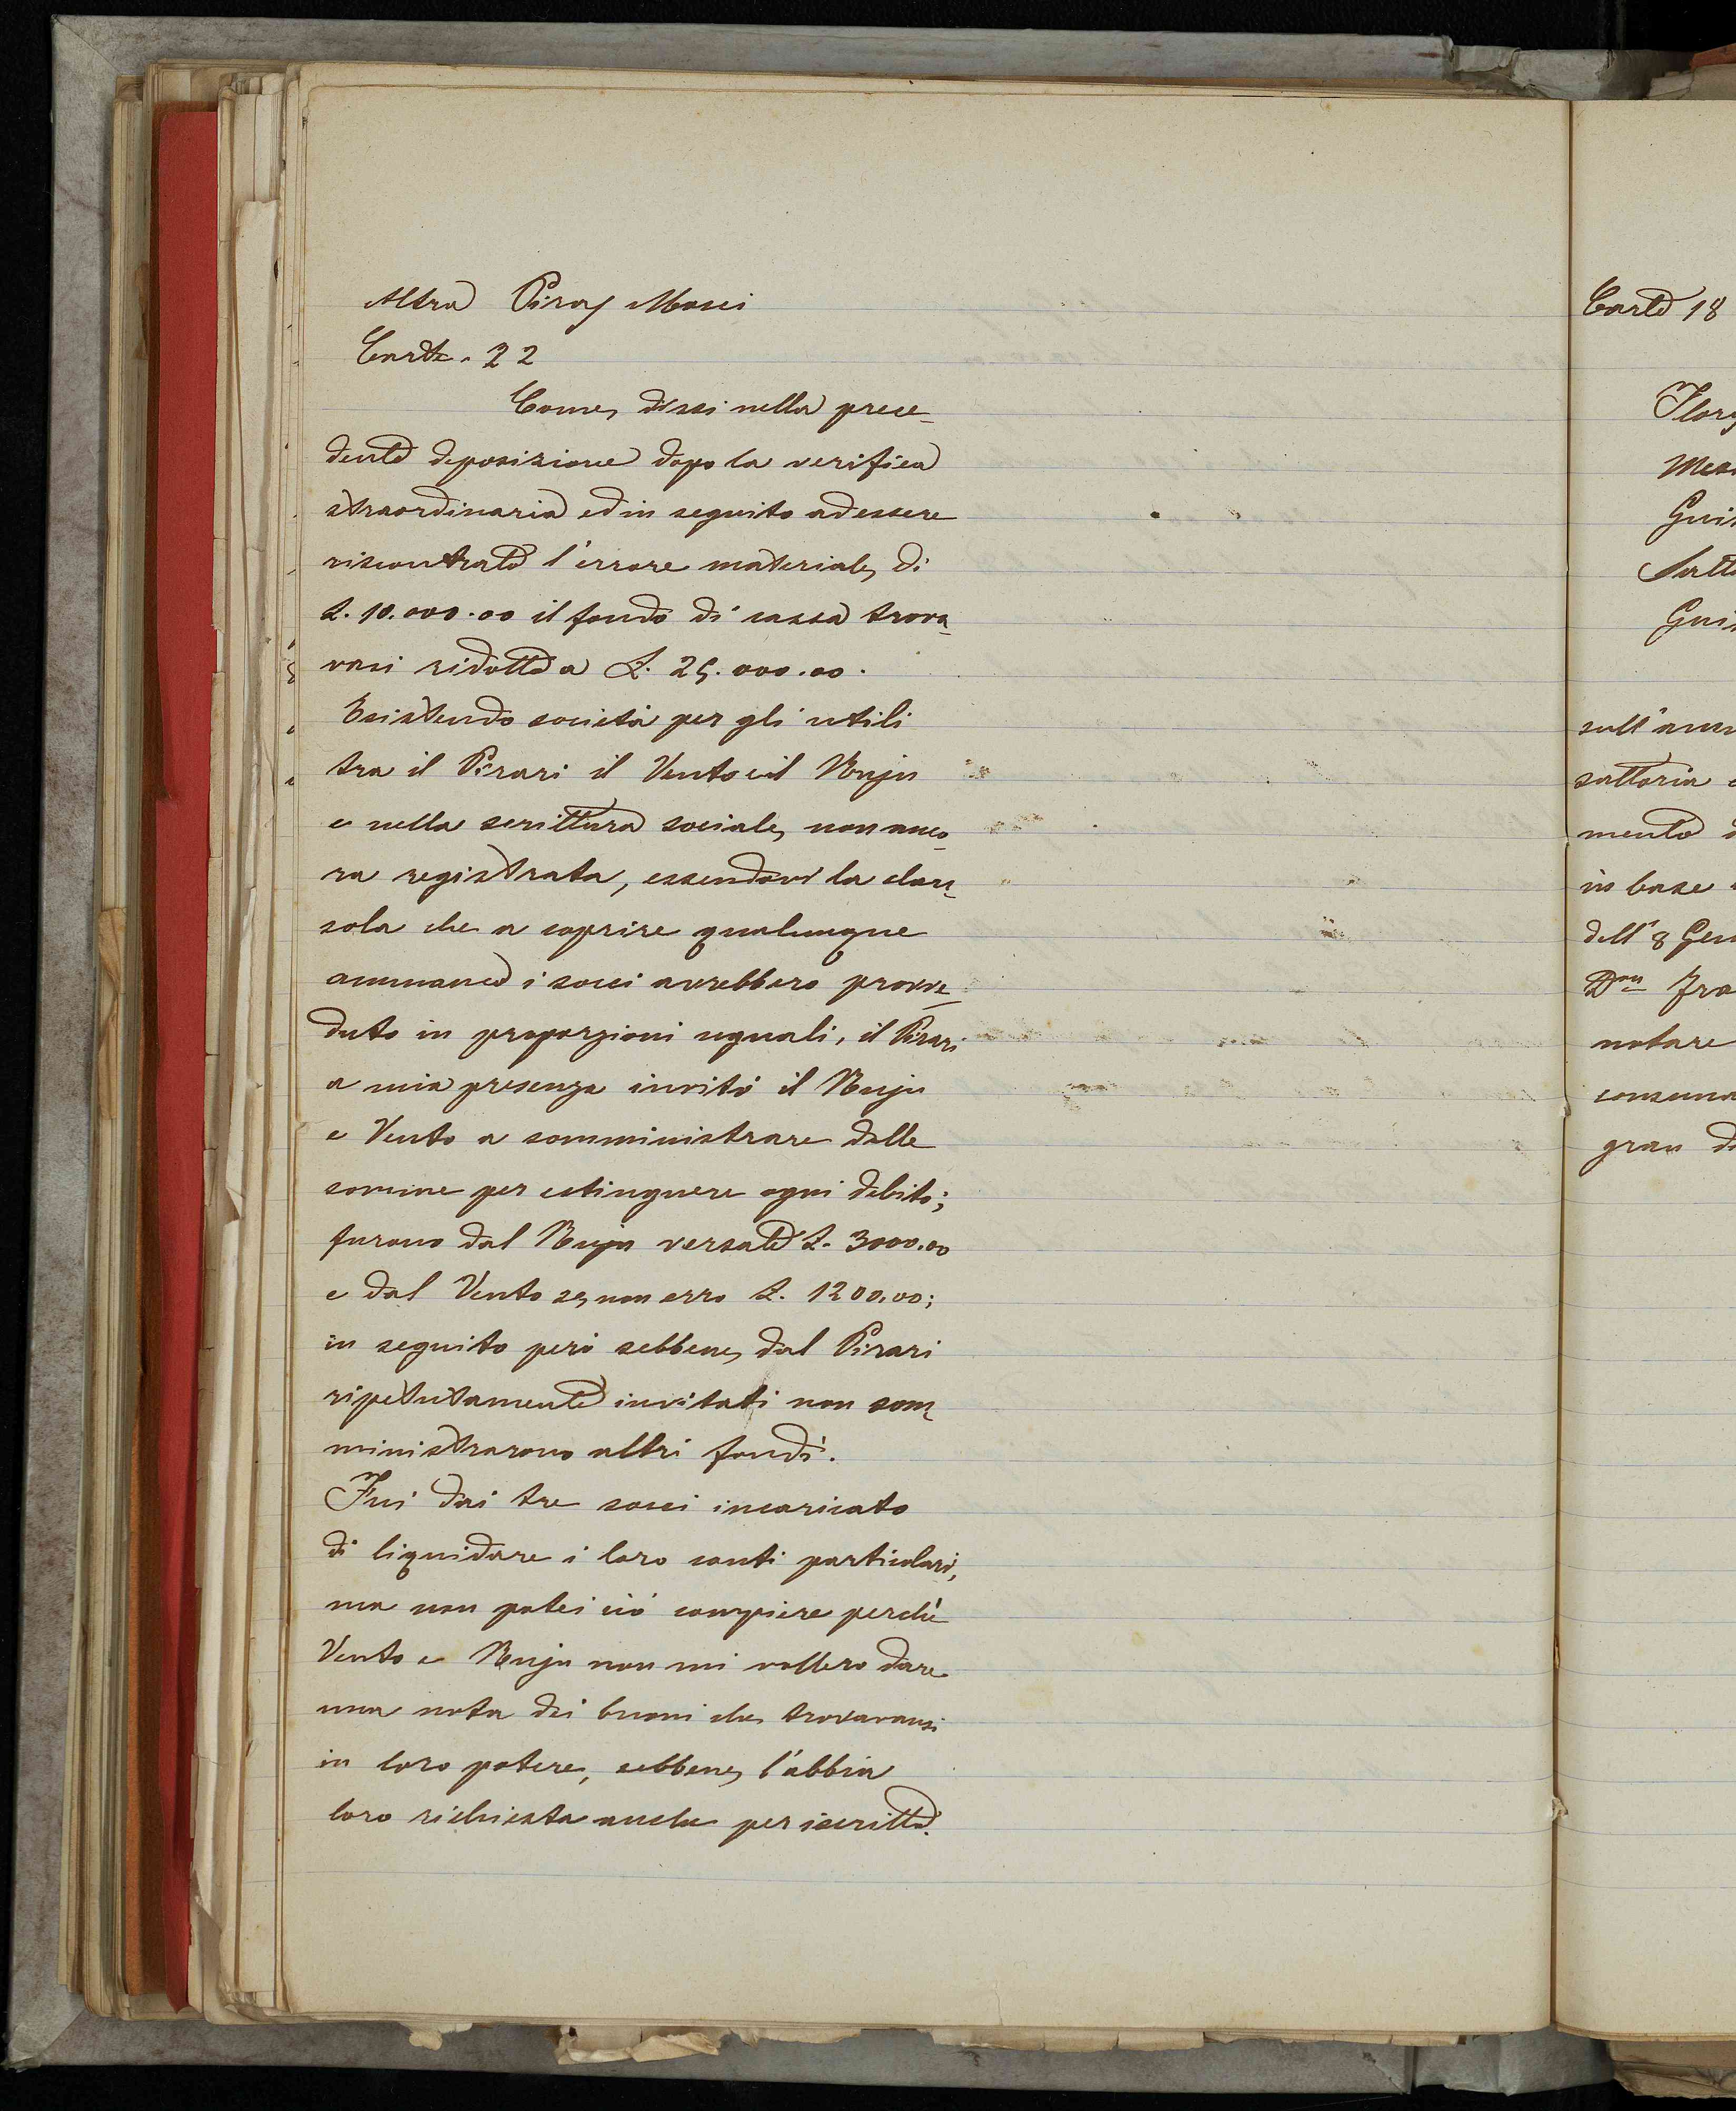 Altra Piras Mosci
Carte. 22
Come dissi nella prece-
dente deposizione dopo la verifica
straordinaria ed in seguito ad essere
riscontrato l'errore materiale di
L. 10.000.00 il fondo di cassa trova-
vasi ridotto a L. 25.000.00.
Esistendo società per gli utili
tra il Pirari il Vento e il Buju
e nella scrittura sociale, non anco-
ra registrata, essendovi la clau-
sola che a coprire qualunque
ammanco i socci avrebbero provve-
duto in proporzioni uguali, il Pirari
a mia presenza invitò il Buju
e Vento a somministrare delle
somme per estinguere ogni debito;
furono dal Buju versate L. 3000.00
e dal Vento se non erro L. 1200.00;
in seguito però sebbene dal Pirari
ripetutamente invitati non som-
ministrarono altri fondi.
Fui dai tre socci incaricato
di liquidare i loro conti particolari,
ma non potei ciò compiere perchè
Vento e Buju non mi vollero dare
una nota dei buoni che trovavansi
in loro potere, sebbene l'abbia
loro richiesta anche per iscritto.
Carte 18
sull'amm
sattoria
mento
in base
dell'8 Gen
Don Fra
notare
consuma
gran di